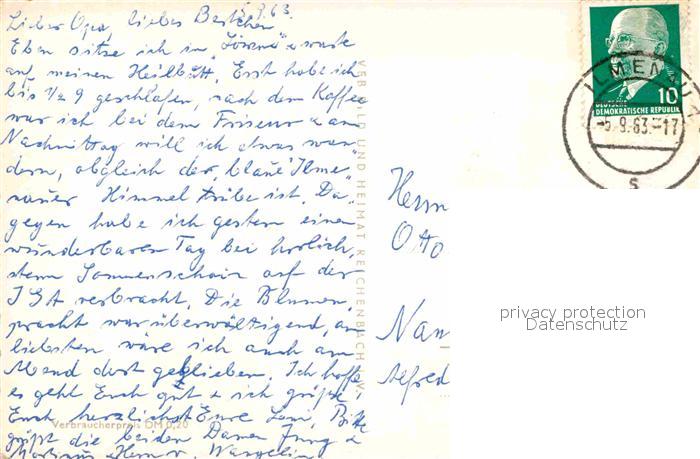 5.9.63.
Lieber Opa, liebes Bertchen
Eben sitze ich im "Löwen" u warte
auf meinen Heilbutt. Erst habe ich
bis ½ 9 geschlafen, nach dem Kaffee
war ich bei dem Friseur u am
Nachmittag will ich etwas wan-
dern, obgleich der "blaue" Ilme-
nauer Himmel trübe ist. Da-
gegen habe ich gestern einen
wunderbaren Tag bei herrlich-
stem Sonnenschein auf der
IGA verbracht. Die Blumen-
pracht war überwältigend, am
liebsten wäre ich auch am
Abend dort geblieben. Ich hoffe,
es geht Euch gut u ich grüße
Euch herzlichst Eure Leni, Bitte
grüßt die beiden Damen Jung u
Herrn
VEB BILD UND HEIMAT REICHENBACH I. V.
Verbraucherpreis DM 0,20
ILMENAU
-5.9.63.-17
s
10
DEUTSCHE
DEMOKRATISCHE REPUBLIK
Herrn
Otto
Nau
Alfred
privacy protection
Datenschutz